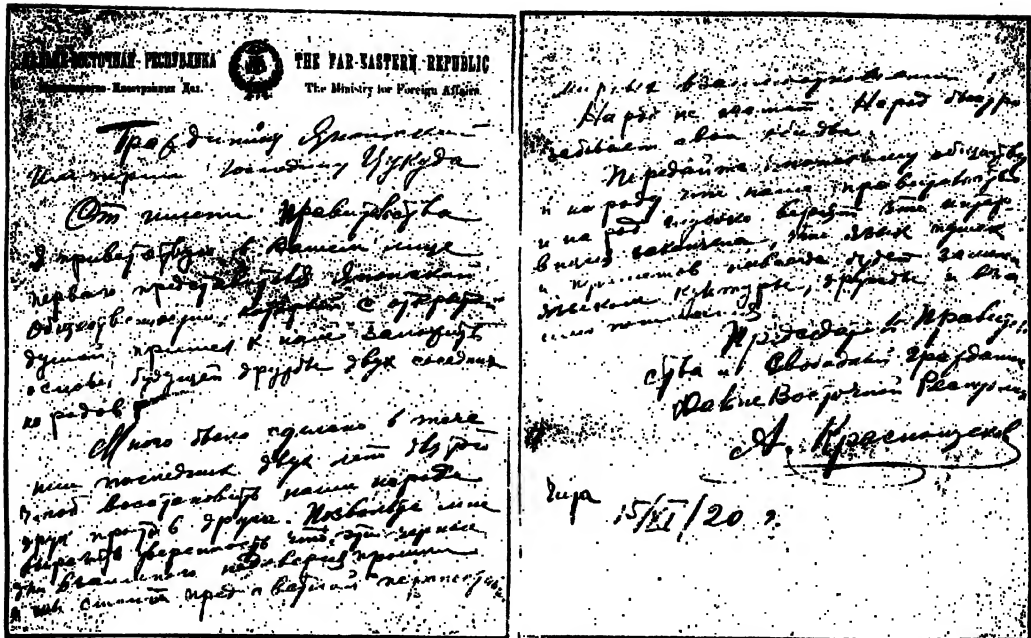 ДАЛЬНЕ-ВОСТОЧНАЯ РЕСПУБЛИКА
THE FAR-EASTERN REPUBLIC
Министерство Иностранных Дел.
The Ministry for Foreign Affairs.
Гражданину Японской
Империи Господину Цукуда
От имени Правительства
я приветствую в вашем лице
первого представителя Японской
общественности, который с открытой
душой пришел к нам заложить
основы будущей дружбы двух соседних
народов
Много было сделано в тече
нии последних двух лет
чтоб восстановить наши народы
друг против друга. Позвольте мне
выразить уверенность что эти черные
дни взаимного недоверия прошли
и мы стоим пред
мирных взаимоотношений.
Народ не мстит. Народ быстро
забывает свои обиды.
Передайте японскому обществу
и народу что наше правительство
и народ глубоко верят что
закончена, что язык пушек
и навсегда будет заменен
языком культуры, дружбы и вза
имо понимания
Председатель Правитель
ства и Свободный гражданин
Дальне Восточной Республики
А. Краснощеков
Чита
15/XI/20 г.